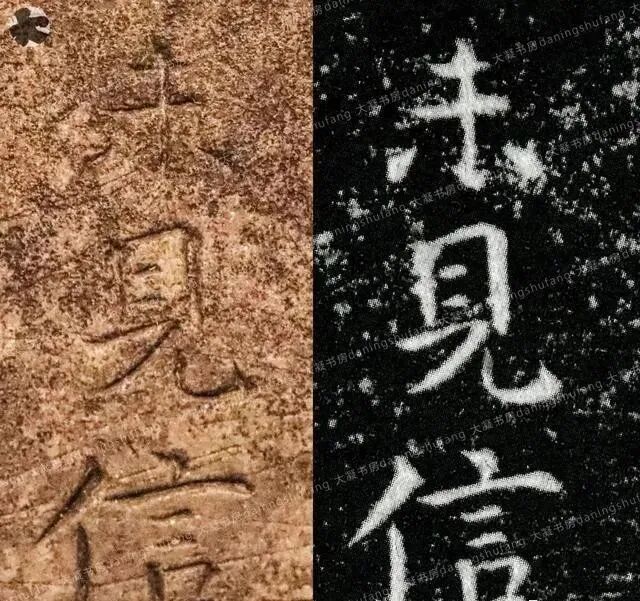 未見信
未見信
大凝书房daningshufang